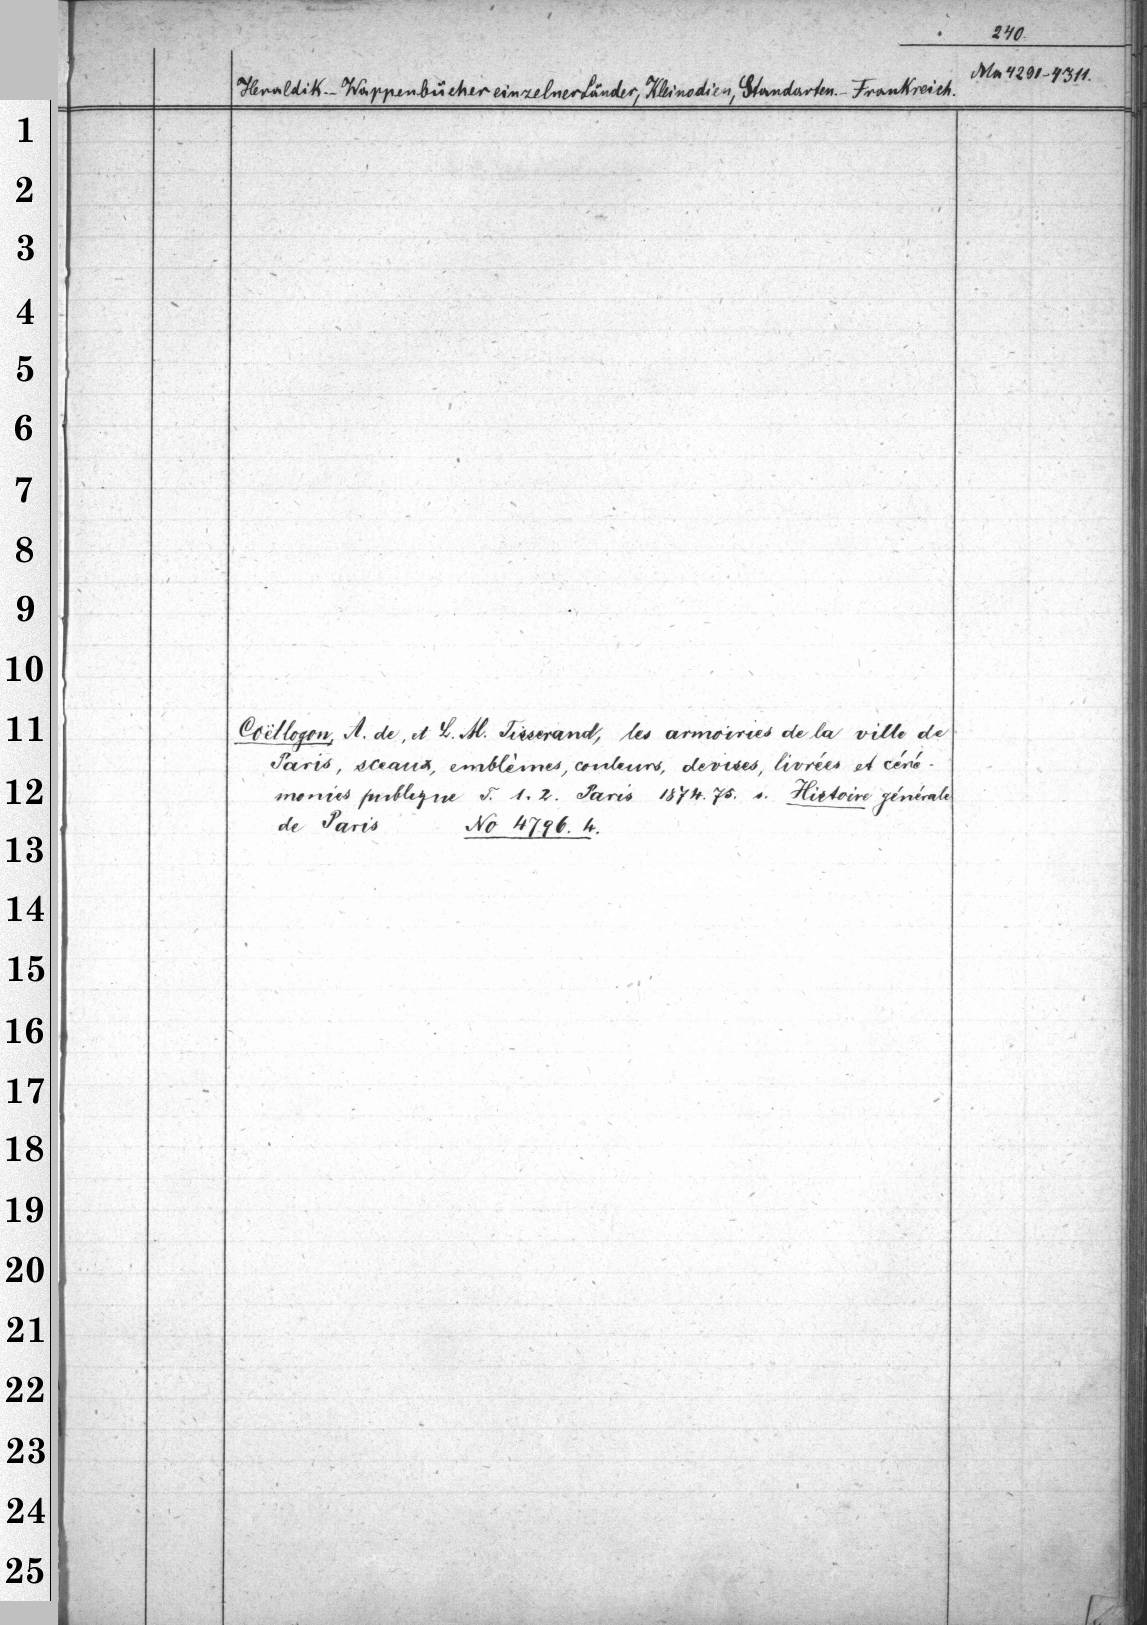 240.
Ma 4291-4311.
Heraldik. - Wappenbücher einzelner Länder, Kleinodien, Standarten. - Frankreich.
1
2
3
4
5
6
7
8
9
10
11
Coëtlogon, A. de, et L. M. Tisserand, les armoiries de la ville de
Paris, sceaux, emblèmes, couleurs, devises, livrées et céré-
12
monies publique T. 1. 2. Paris 1874. 75. s. Histoire générale
de Paris No 4796. 4.
13
14
15
16
17
18
19
20
21
22
23
24
25